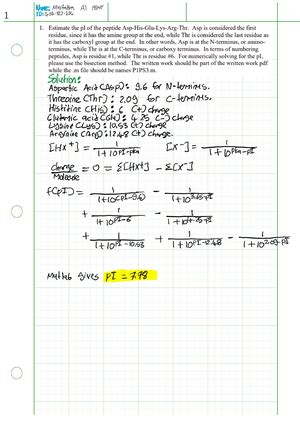 1
Name: Mustafah Al Momt
ID:
1. Estimate the pI of the peptide Asp-His-Glu-Lys-Arg-Thr. Asp is considered the first
residue, since it has the amine group at the end, while Thr is considered the last residue as
it has the carboxyl group at the end. In other words, Asp is at the N-terminus, or amino-
terminus, while Thr is at the C-terminus, or carboxy terminus. In terms of numbering
peptides, Asp is residue #1, while Thr is residue #6. For numerically solving for the pI,
please use the bisection method. The written work should be part of the written work pdf
while the .m file should be names P1PS3.m.
Solution:
Aspartic Acid (Asp): 9.6 for N-terminus.
Threonine (Thr): 2.09 for C-terminus.
Histidine (His): 6 (+) charge
Glutamic acid (Glu): 4.25 (-) charge
Lysine (Lys): 10.53 (+) charge.
Arginine (Arg): 12.48 (+) charge.
[HX+] = 1/1+10^pI-pka [X-] = 1/1+10^pka-pI
charge/Molecule = 0 = Σ[HX+] - Σ[X-]
f(pI) = 1/1+10^(pI-9.6) - 1/1+10^3.65-pI
+ 1/1+10^pI-6 - 1/1+10^4.25-pI
+ 1/1+10^pI-10.53 + 1/1+10^pI-12.48 - 1/1+10^2.09-pI
Matlab gives pI = 7.78